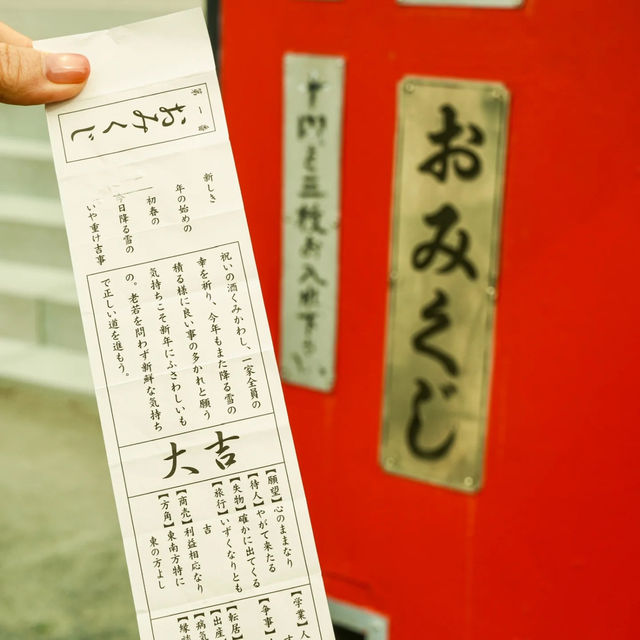 第一番
おみくじ
新しき
年の始めの
初春の
今日降る雪の
いや重け吉事
祝いの酒くみかわし、一家全員の
幸を祈り、今年もまた降る雪の
積る様に良い事の多かれと願う
気持ちこそ新年にふさわしいも
の。老若を問わず新鮮な気持ち
で正しい道を進もう。
大吉
【願望】心のままなり
【待人】やがて来たる
【失物】確かに出てくる
【旅行】いずくなりとも
吉
【商売】利益相応なり
【方角】東南方特に
東の方よし
【学業】人
【争事】
【転居】
【出産
【病気
【縁談
おみくじ